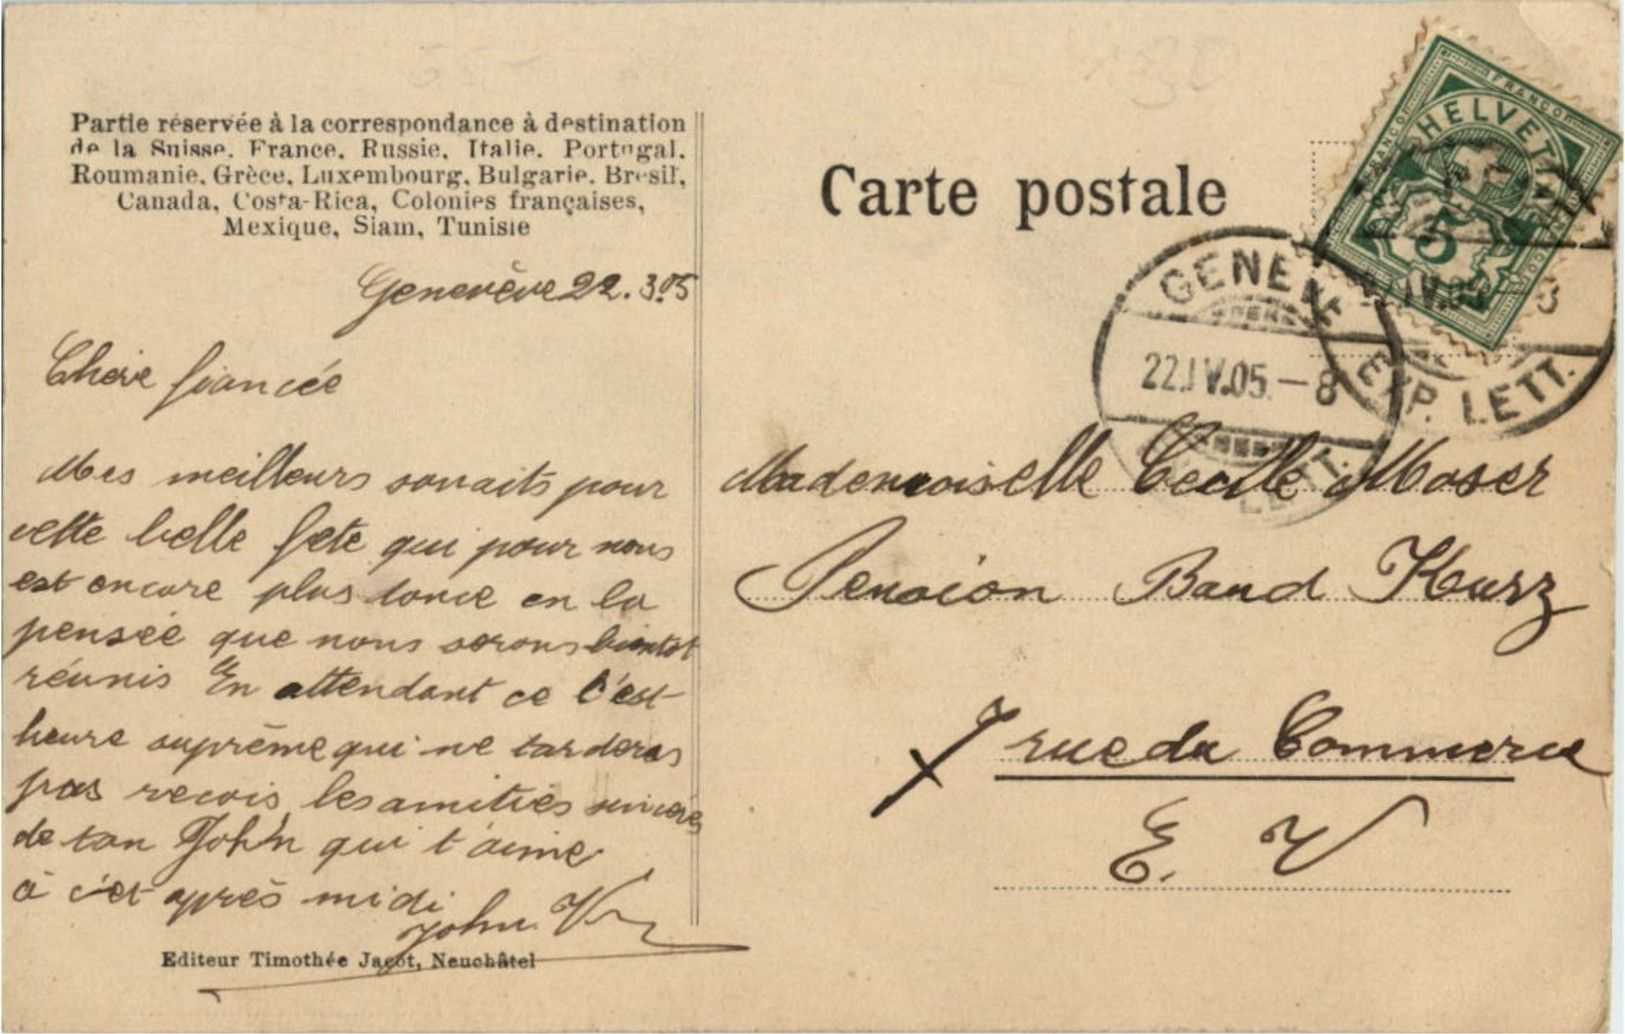 Partie réservée à la correspondance à destination
de la Suisse, France, Russie, Italie, Portugal,
Roumanie, Grèce, Luxembourg, Bulgarie, Brésil,
Canada, Costa-Rica, Colonies françaises,
Mexique, Siam, Tunisie
Carte postale
FRANCO HELVETIA
5
GENÈVE
22.IV.05.-8
EXP. LETT.
Genevève 22.3.05
Chère fiancée
Mes meilleurs souaits pour
cette belle fete qui pour nous
est encore plus en la
pensée que nous serons bientot
réunis En attendant ce c'est
heure suprême qui ne tarderas
pas recois les amitiés sincères
de ton John qui t'aime
à c'et après midi
John. V
Mademoiselle Cecile Moser
Pension Band Kurz
7 rue du Commerce
E. V
Editeur Timothée Jacot, Neuchâtel